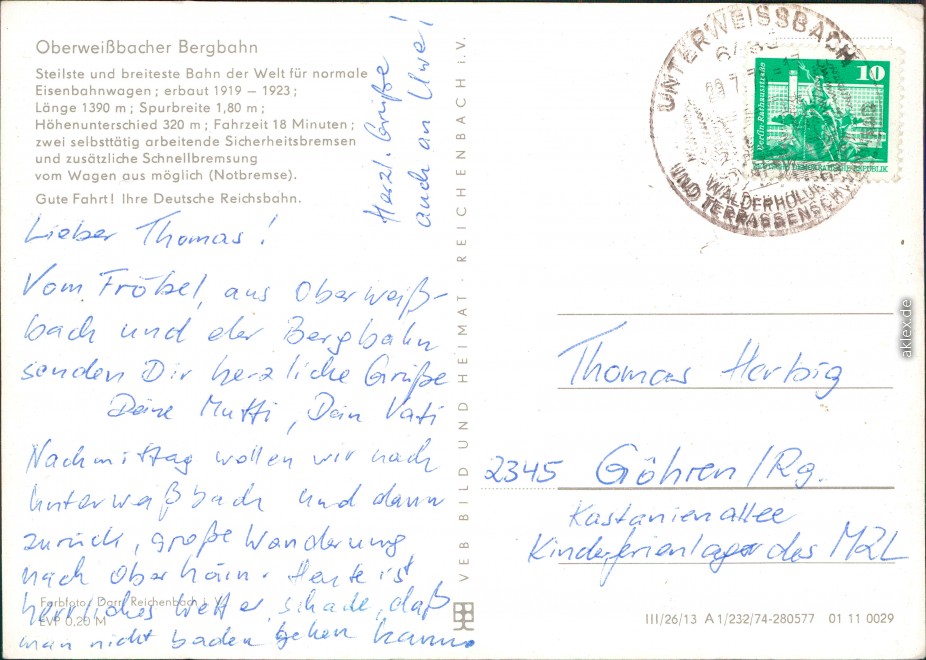 Oberweißbacher Bergbahn
Steilste und breiteste Bahn der Welt für normale
Eisenbahnwagen; erbaut 1919 – 1923;
Länge 1390 m; Spurbreite 1,80 m;
Höhenunterschied 320 m; Fahrzeit 18 Minuten;
zwei selbsttätig arbeitende Sicherheitsbremsen
und zusätzliche Schnellbremsung
vom Wagen aus möglich (Notbremse).
Gute Fahrt! Ihre Deutsche Reichsbahn.
Herzl. Grüße
auch an Uwe!
Lieber Thomas!
Vom Fröbel, aus Oberweiß-
bach und der Bergbahn
senden Dir herzliche Grüße
Deine Mutti, Dein Vati
Nachmittag wollen wir nach
Unterweißbach und dann
zurück, große Wanderung
nach Oberhain. Heute ist
herrliches Wetter, schade, daß
man nicht baden gehen kann.
Farbfoto: Darr, Reichenbach i. V.
EVP 0,20 M
VEB BILD UND HEIMAT · REICHENBACH I.V.
UNTERWEISSBACH
WALDERHOLU
UND TERRASSENSCHW
10
Berlin-Rathausstraße
DEUTSCHE DEMOKRATISCHE REPUBLIK
Thomas Herbig
2345 Göhren/Rg.
Kastanienallee
Kinderferienlager des MZL
III/26/13 A1/232/74-280577 01 11 0029
aklex.de